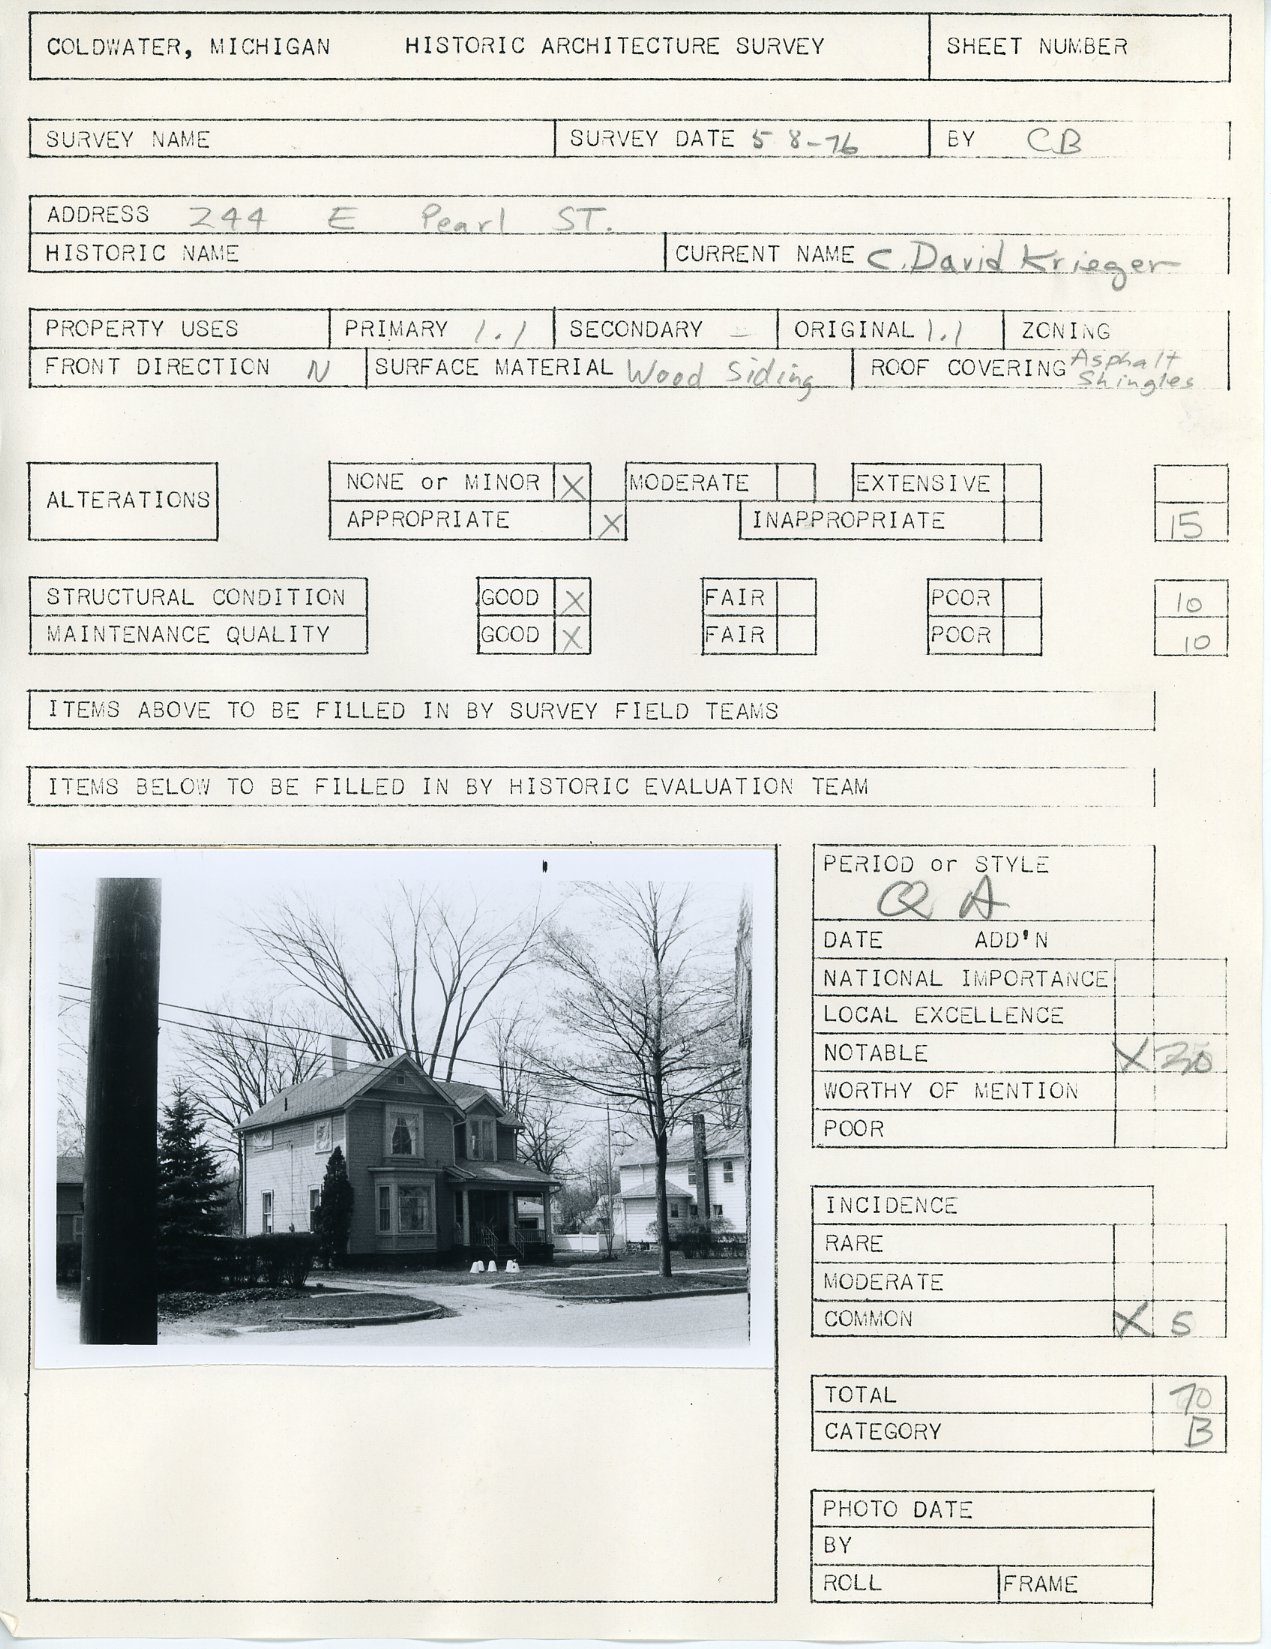 COLDWATER, MICHIGAN HISTORIC ARCHITECTURE SURVEY SHEET NUMBER
SURVEY NAME SURVEY DATE 5 8-76 BY CB
ADDRESS 244 E Pearl ST.
HISTORIC NAME CURRENT NAME C. David Krieger
PROPERTY USES PRIMARY 1.1 SECONDARY - ORIGINAL 1.1 ZONING
FRONT DIRECTION N SURFACE MATERIAL Wood Siding ROOF COVERING Asphalt Shingles
ALTERATIONS NONE or MINOR X MODERATE EXTENSIVE
APPROPRIATE X INAPPROPRIATE 15
STRUCTURAL CONDITION GOOD X FAIR POOR 10
MAINTENANCE QUALITY GOOD X FAIR POOR 10
ITEMS ABOVE TO BE FILLED IN BY SURVEY FIELD TEAMS
ITEMS BELOW TO BE FILLED IN BY HISTORIC EVALUATION TEAM
PERIOD or STYLE
Q A
DATE ADD'N
NATIONAL IMPORTANCE
LOCAL EXCELLENCE
NOTABLE X 30
WORTHY OF MENTION
POOR
INCIDENCE
RARE
MODERATE
COMMON X 5
TOTAL 70
CATEGORY B
PHOTO DATE
BY
ROLL FRAME